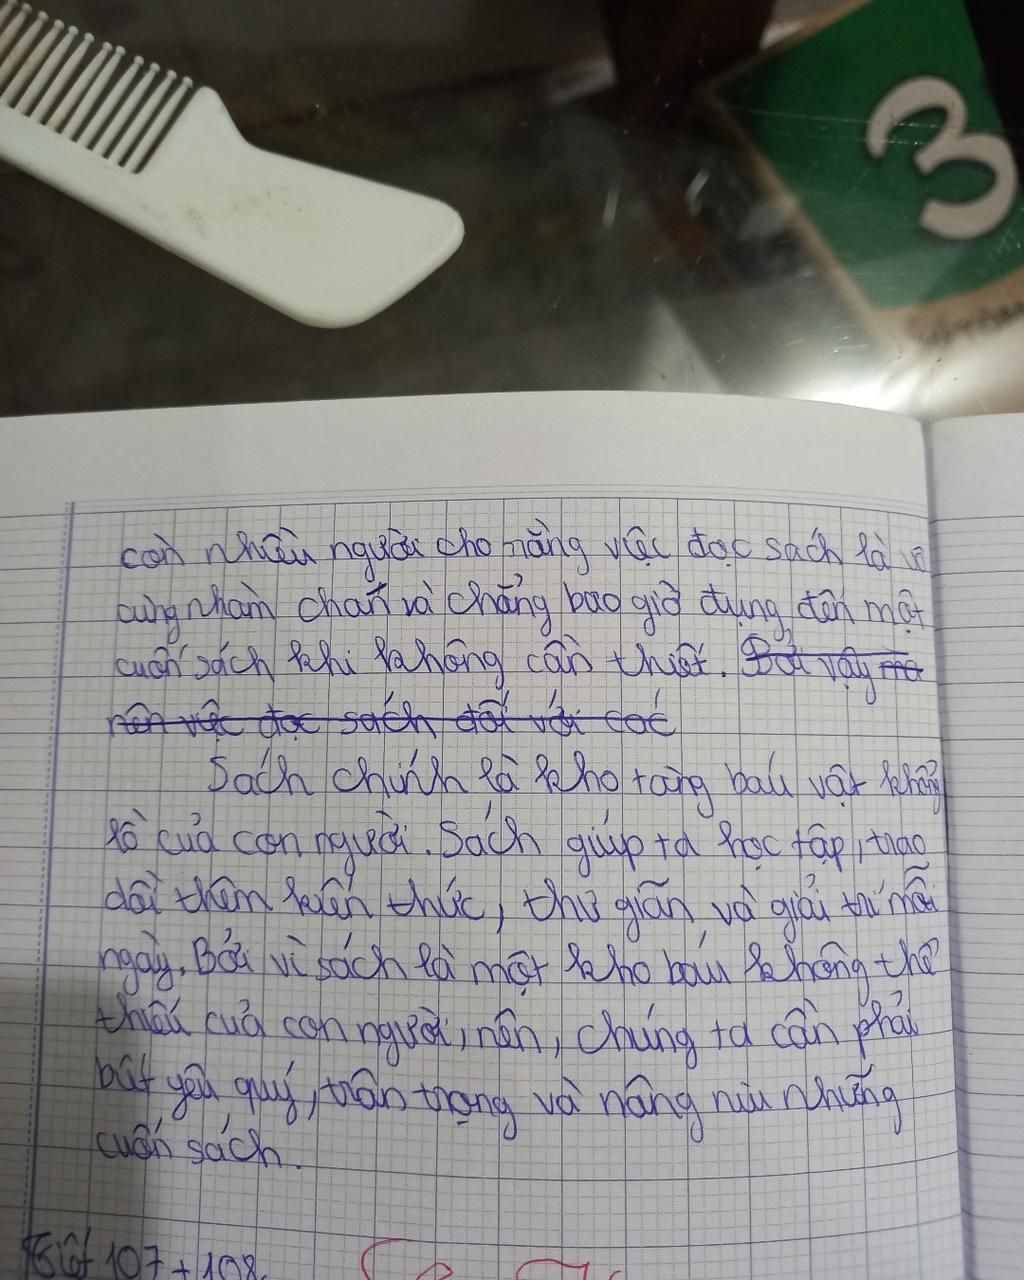 3
còn nhiều người cho rằng việc đọc sách là vô
cùng nhàm chán và chẳng bao giờ đụng đến một
cuốn sách khi không cần thiết. Bởi vậy mà
nên việc đọc sách đối với các
Sách chính là kho tàng báu vật khổng
lồ của con người. Sách giúp ta học tập, trao
dồi thêm kiến thức, thư giãn và giải trí mỗi
ngày. Bởi vì sách là một kho báu không thể
thiếu của con người, nên, chúng ta cần phải
biết yêu quý, trân trọng và nâng niu những
cuốn sách.
Tiết 107 + 108.